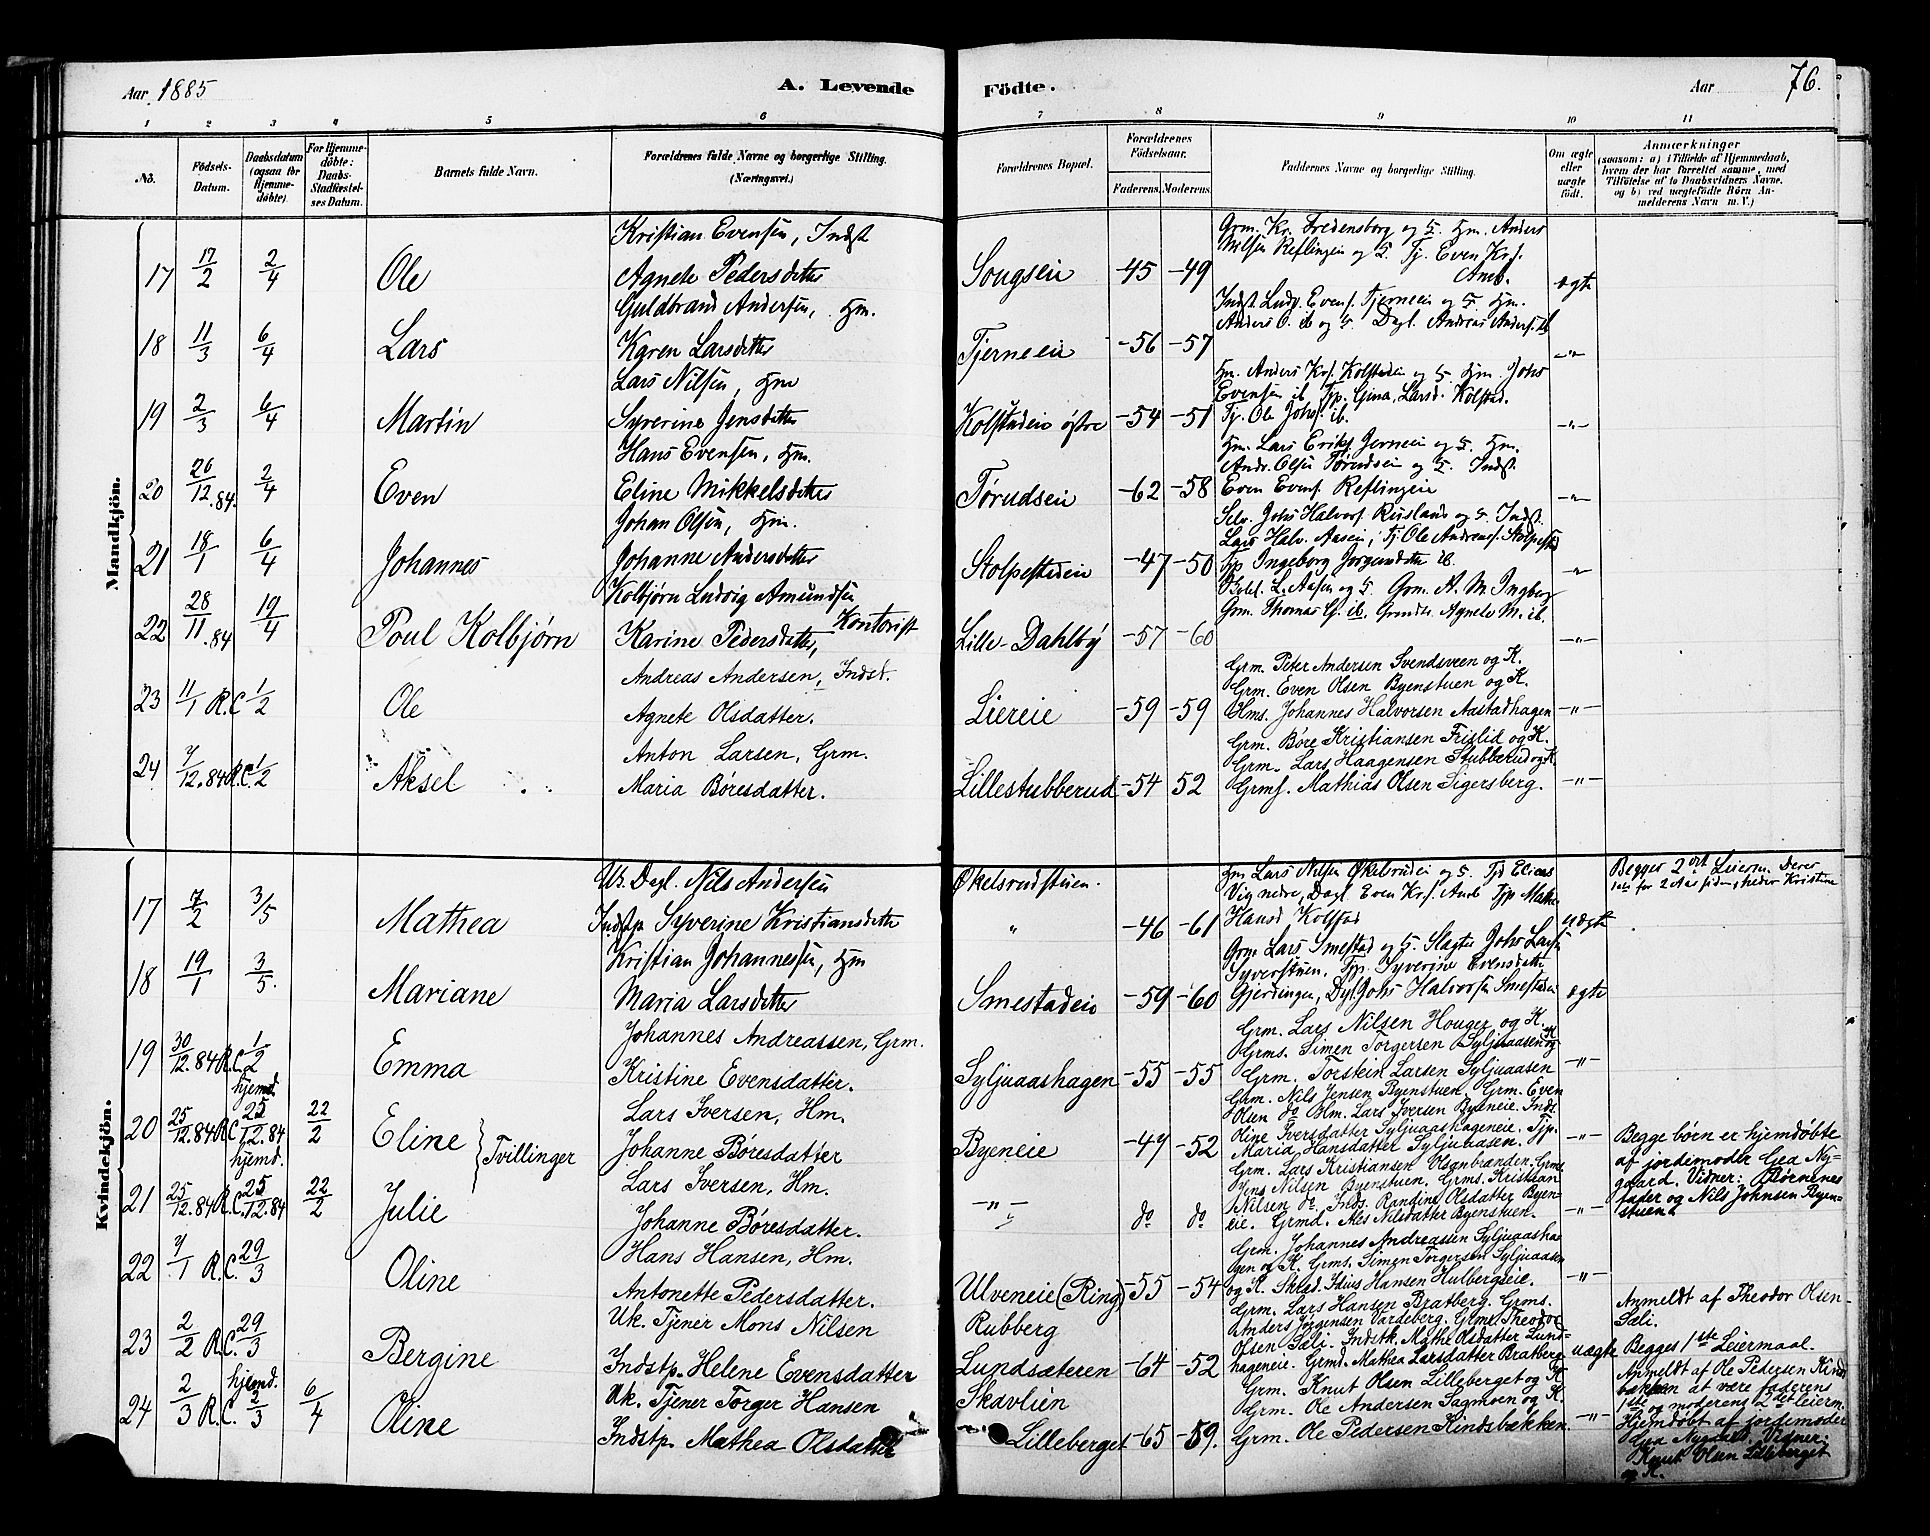 Aar 1885
A. Levende
Födte.
Aar
76.
1 2 3 4 5 6 7 8 9 10 11
No.
Födsels-Datum.
Daabsdatum (ogsaa för Hjemme-döbte)
For Hjemme-döbte: Daabs-Stadfæstel-ses Datum.
Barnets fulde Navn.
Forældrenes fulde Navne og borgerlige Stilling. (Næringsvei.)
Forældrenes Bopæl.
Forældrenes Födselsaar.
Faderens. Moderens.
Faddernes Navne og borgerlige Stilling.
Om ægte eller uægte födt.
Anmærkninger
(saasom: a) i Tilfælde af Hjemmedaab, hvem der har forrettet samme, med Tilföielse af to Daabsvidners Navne. og b) ved uægtefödte Börn Anmelderens Navn m. V.)
Mandkjön.
Kristian Evensen, Indst
17 17/2 2/4 Ole Agnete Pedersdatter Songseie -45 -49 ægte
Grm. Kr. Fredensborg og K. Hm. Anders
Nilsen Reflingeie og K. Tj. Even Kr.
Guldbrand Andersen, Hm.
18 11/3 6/4 Lars Karen Larsdatter Tjerneeie -56 -57 -"-
Indst. Ludv. Evens. Tjerneeie og K. Hm.
Anders O. ib og K. Dagl. Andreas Anders. ib
Lars Nilsen, Hm
19 2/3 6/4 Martin Syverine Jensdatter Kolstadeie østre -54 -51 -"-
Hm. Anders Kr. Kolstadeie og K. Hm. Johs
Evensen ib Tjp. Gina Larsd. Kolstad.
Tj. Ole Johs. ib.
Hans Evensen, Hm.
20 26/12.84. 2/4 Even Eline Mikkelsdatter Törudseie -62 -58 -"-
Hm. Lars Eriks. Jerneeie og K. Hm.
Andr. Olsen Törudseie og K. Indst.
Even Evens. Reflingeie
Johan Olsen, Hm.
21 18/1 6/4 Johannes Johanne Andersdatter Stolpestadeie -47 -50 -"-
Selv. Johs Halvors. Rusland og K. Indst.
Lars Halv. Aaseie, Tj. Ole Andreas. Stolpestad
Tjp Ingeborg Jørgensdatter ib.
Kolbjørn Ludvig Amundsen Kontorist
22 28/11.84 19/4 Poul Kolbjørn Karine Pedersdatter, Lille-Dahlby -57 -60 -"-
L. Aasen og K. Grm. A. M. Ingberg
Grm. Thomas G. ib. Agnete M. ib.
Andreas Andersen, Indst.
23 11/1 R.C 1/2 Ole Agnete Olsdatter. Liereie -59 -59 -"-
Grm. Peter Andersen Svendsveen og K.
Grm. Even Olsen Byenstuen og K.
Hms. Johannes Halvorsen Aastadhagen
Anton Larsen, Grm.
24 7/12.84 R.C 1/2 Aksel Maria Børesdatter. Lillestubberud -54 52 -"-
Grm. Børe Kristiansen Frislid og K.
Grm. Lars Haagensen Stubberud og K.
Grmf. Mathias Olsen Sigersberg.
Kvindekjön.
Uk. Dagl. Nils Andersen Økelsrudstuen.
17 7/2 3/5 Mathea Indstp Syverine Kristiansdatter " -46 -61 uægte
Hm Lars Nilsen Økelsrudeie og K. Tjd Elias
Vig nedre, Dagl. Even Kr. Tjp Mathea
Hansd Kolstad
Begges 2det Leierm. Deres
1ste for 2 Aar siden, heder Kristine
Kristian Johannessen, Hm
18 19/1 3/5. Mariane Maria Larsdatter Smestadeie -59 -60 ægte
Grm. Lars Smestad og K. Slagter Johs Larsen
Syverstuen. Tjp. Syverine Evensdatter
Gjerdingen, Dgl. Johs Halvorsen Smestadeie
Johannes Andreassen, Grm.
19 30/12.84 R.C. 1/2 Emma Kristine Evensdatter. Syljuaashagen -55 -55 -"-
Grm. Lars Nilsen Houger og K.
Grms. Simen Torgersen Syljuaasen og K
Grm. Torstein Larsen Syljuaasen
Lars Iversen, Hm.
20 25/12.84 R.C. hjemd. 25/12.84 22/2 Eline } Tvillinger Johanne Børesdatter Byeneie -49 -52 -"-
Grm. Nils Jensen Byenstuen. Grm. Even
Olsen do Hm. Lars Iversen Byeneie. Inds.
Oline Iversdatter Syljuaashageneie. Tjp.
Maria Hansdatter Syljuaasen.
Begge børn er hjemdøbte
af jordemoder Gea Ny-
gaard. Vidner: Børnenes
fader og Nils Johnsen Byen-
stuen
Lars Iversen, Hm.
21 25/12.84 R.C. hjemd. 25/12.84 22/2 Julie Johanne Børesdatter. -"- do do -"-
Grm. Lars Kristiansen Olsanbranden. Grms.
Jens Nilsen Byenstuen. Grms. Kristian
Nilsen do. Inds. Randine Olsdatter Byen-
eie. Grmd. Mes Nilsdatter Byenstuen.
Hans Hansen, Hm.
22 7/1 R.C. 29/3 Oline Antonette Pedersdatter. Ulveneie (Ring) -55 -54 -"-
Grm. Johannes Andreassen Syljuaasha-
gen og K. Grms. Simen Torgersen Syljuaasen
og K. Skræd. Hansen Hulbergseie.
Uk. Tjener Mons Nilsen Rubberg.
23 2/2 R.C. 29/3 Bergine Indstp. Helene Evensdatter Lundsæteren -64 -52 uægte
Grm. Lars Hansen Bratberg. Grms.
Anders Jørgensen Vardeberg. Grms. Theodor
Olsen Sæli. Indstk. Mathe Olsdatter Lund-
hageneie. Grmd. Mathea Larsdatter Bratberg
Anmeldt af Theodor Olsen
Sæli.
Begges 1ste Leiermaal.
Uk. Tjener Torger Hansen Skavlien
24 2/3 R.C. hjemd. 2/3 6/4 Oline Indstp. Mathea Olsdatter Lilleberget -65 -59. -"-
Grm. Knut Olsen Lilleberget og K
Grm. Ole Andersen Sagmoen og K.
Grm. Ole Pedersen Kindsbækken.
Anmeldt af Ole Pedersen Kinds
bækken at være faderens
1ste og moderens 2det leierm.
Hjemdøbt af jordemoder
Gea Nygaard. Vidner:
Knut Olsen Lilleberget
og K.